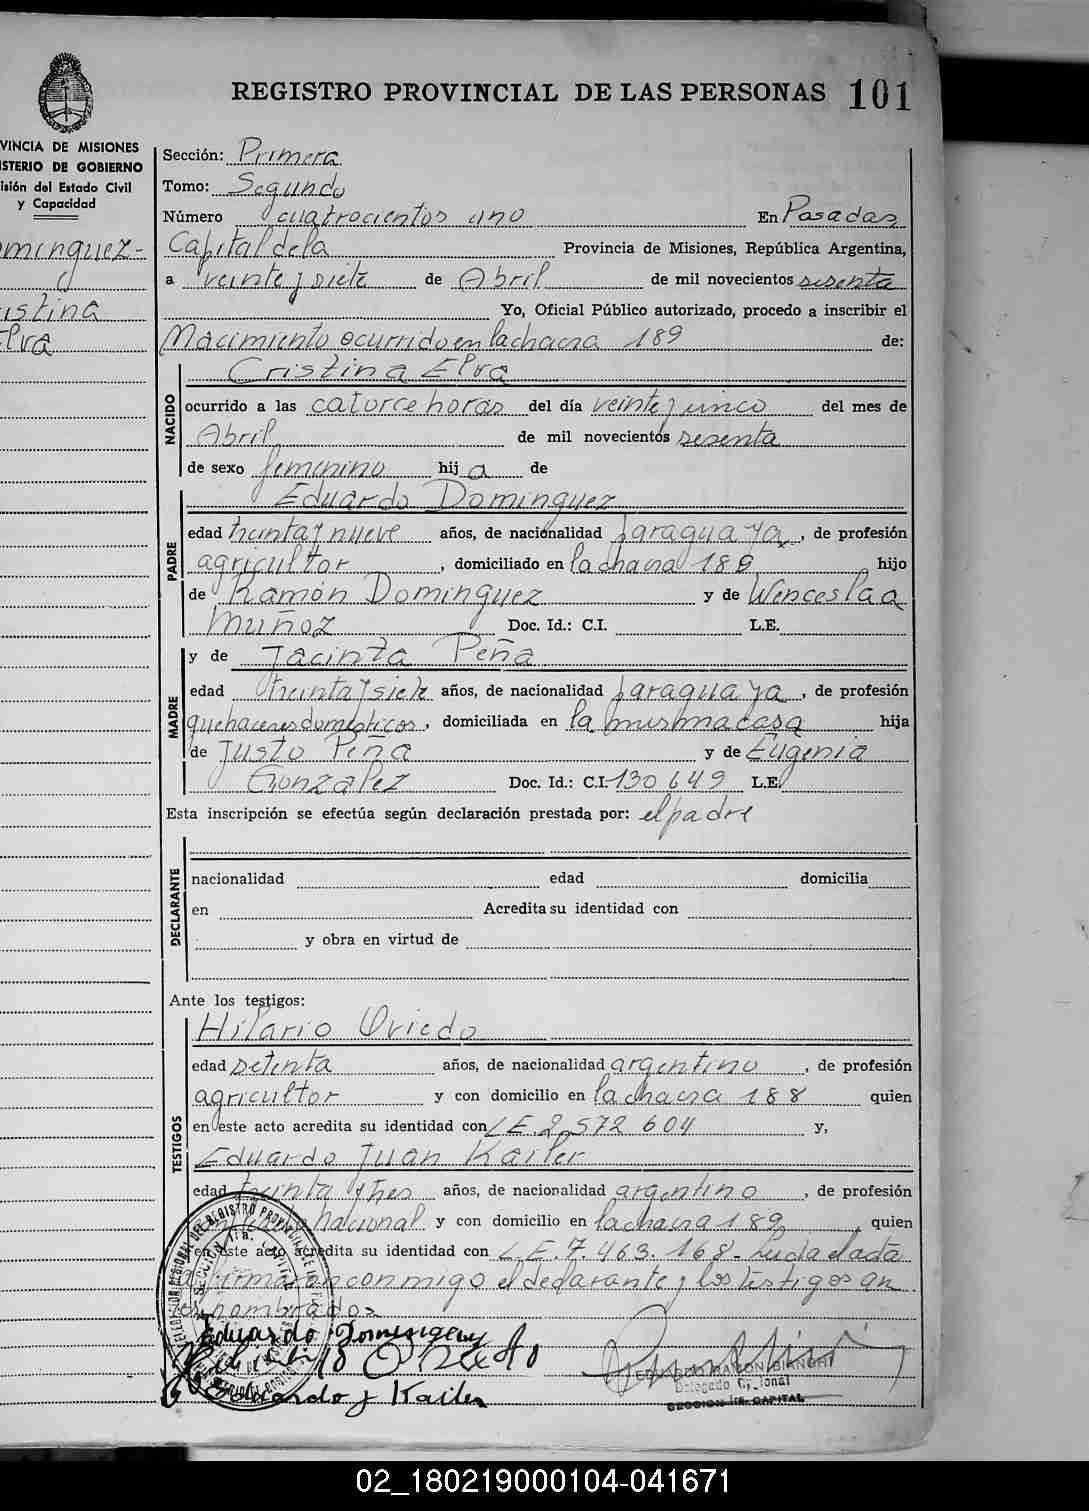 REGISTRO PROVINCIAL DE LAS PERSONAS 101
VINCIA DE MISIONES
ISTERIO DE GOBIERNO
isión del Estado Civil
y Capacidad
minguez-
istina
Elva
Sección: Primera
Tomo: Segundo
Número cuatrocientos uno En Posadas
Capital de la Provincia de Misiones, República Argentina,
a veinte y siete de Abril de mil novecientos sesenta
Yo, Oficial Público autorizado, procedo a inscribir el
Nacimiento ocurrido en la chacra 189 de:
Cristina Elva
NACIDO
ocurrido a las catorce horas del día veinte y cinco del mes de
Abril de mil novecientos sesenta
de sexo femenino hija de
Eduardo Dominguez
PADRE
edad treinta y nueve años, de nacionalidad paraguaya, de profesión
agricultor, domiciliado en la chacra 189 hijo
de Ramón Dominguez y de Wenceslaa
Muñoz Doc. Id.: C.I. L.E.
y de Jacinta Peña
MADRE
edad treinta y siete años, de nacionalidad paraguaya, de profesión
quehaceres domésticos, domiciliada en la misma casa hija
de Justo Peña y de Eugenia
Gonzalez Doc. Id.: C.I. 130649 L.E.
Esta inscripción se efectúa según declaración prestada por: el padre
DECLARANTE
nacionalidad edad domicilia
en Acredita su identidad con
y obra en virtud de
Ante los testigos:
Hilario Oviedo
TESTIGOS
edad setenta años, de nacionalidad argentino, de profesión
agricultor y con domicilio en la chacra 188 quien
en este acto acredita su identidad con L.E. 2.572 604 y,
Eduardo Juan Kailer
edad treinta y tres años, de nacionalidad argentino, de profesión
nacional y con domicilio en la chacra 189 quien
en este acto acredita su identidad con L.E. 7.463.168- Leida el acta
la firmaron conmigo el declarante y los testigos an
tes nombrados
Eduardo Dominguez
Oviedo
Eduardo J Kailer
EDUARDO RAMON BIANCHI
Delegado
SECCION 1ra. CAPITAL
02_180219000104-041671